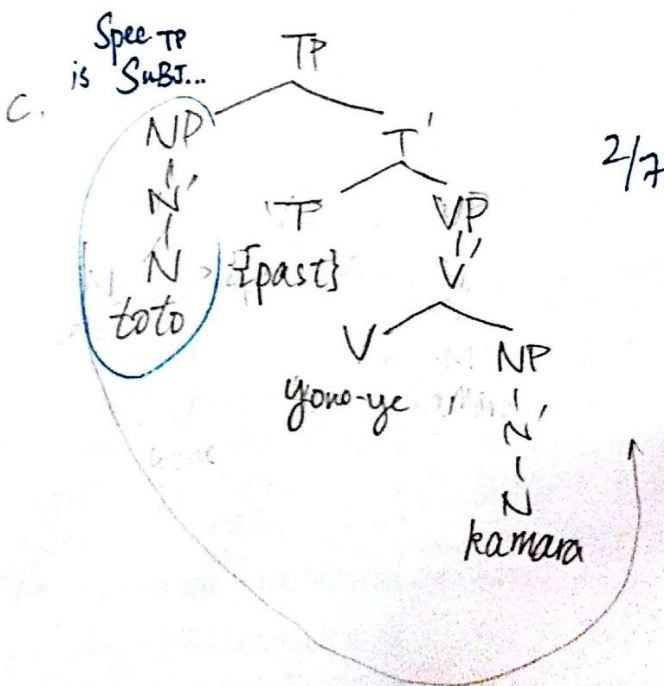 Spec TP
is SUBJ...
TP
C.
NP
T'
2/7
N'
T
VP
N
{past}
V'
toto
V
NP
yono-ye
N'
N
kamara